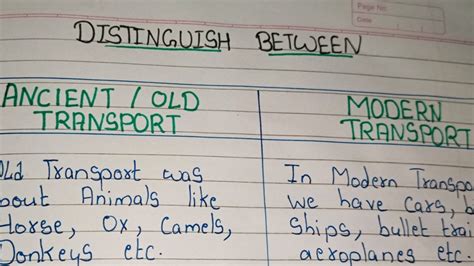 Page No:
Date
DISTINGUISH BETWEEN
ANCIENT / OLD
TRANSPORT
MODERN
TRANSPORT
Old Transport was
about Animals like
Horse, Ox, Camels,
Donkeys etc.
In Modern Transpo
we have Cars, b
Ships, bullet trai
aeroplanes etc.